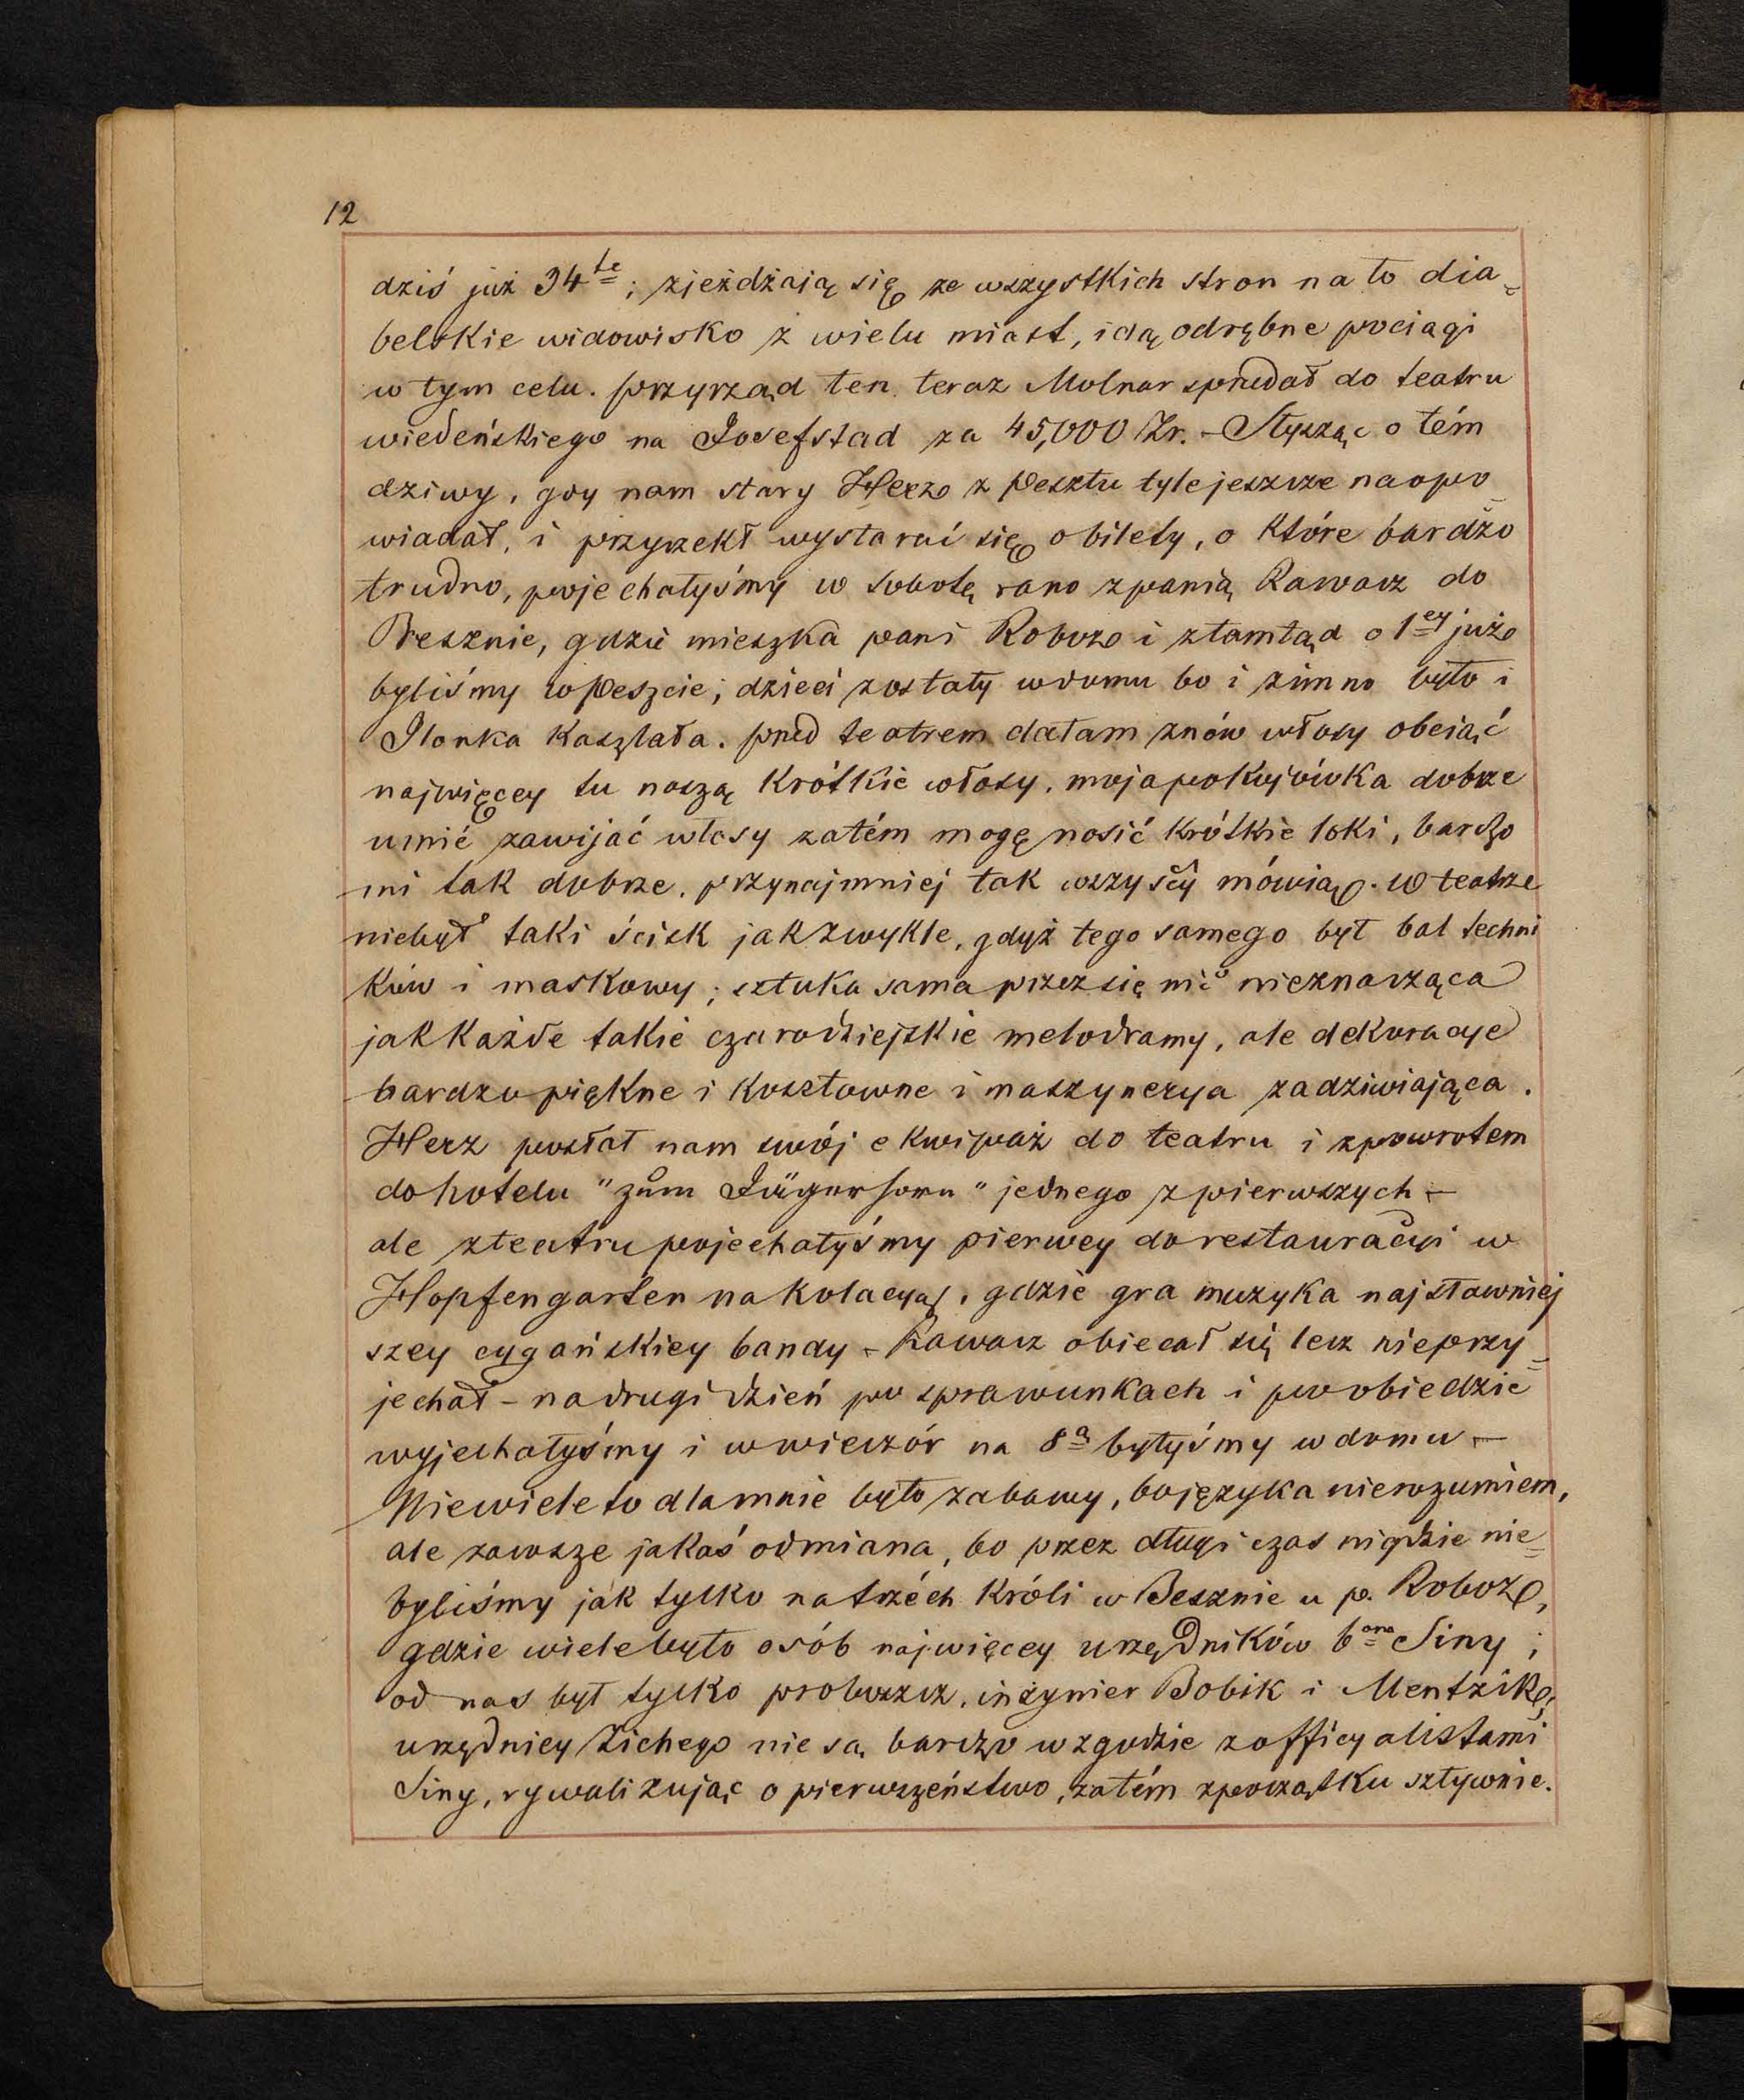 12
dziś już 34te; zjeżdżają się ze wszystkich stron na to dia=
belskie widowisko z wielu miast, idą odrębne pociągi
w tym celu. przyrząd ten teraz Molnar sprzedał do teatru
wiedeńskiego na Josefstad za 45,000 Zr. – Słysząc o tém
dziwy, gdy nam stary Herz z Pesztu tyle jeszcze naopo=
wiadał, i przyrzekł wystarać się o bilety, o które bardzo
trudno, pojechałyśmy w sobotę rano z panią Kawacz do
Besznie, gdzie mieszka pani Roboz i ztamtąd o 1ey już
byliśmy w Peszcie; dzieci zostały w domu bo i zimno było i
Ilonka kaszlała. przed teatrem dałam znów włosy obciąć
najwięcey tu noszą krótkie włosy, moja pokojówka dobrze
umié zawijać włosy zatém mogę nosić krótkie loki, bardzo
mi tak dobrze, przynajmniej tak wszyscy mówią. w teatrze
niebył taki ścisk jak zwykle, gdyż tego samego był bal techni
ków i maskowy; sztuka sama przez się nic nieznacząca
jak każde takie czarodziejskie melodramy, ale dekoracje
bardzo piękne i kosztowne i maszynerya zadziwiająca.
Herz posłał nam swój ekwipaż do teatru i zpowrotem
do hotelu "zum Jägerhorn" jednego z pierwszych –
ale z teatru pojechałyśmy pierwey do restauracyi w
Hopfengarten na kolacyą, gdzie gra muzyka najsławniej
szey cygańskiey bandy – Kawacz obiecał się lecz nieprzy=
jechał – na drugi dzień po sprawunkach i po obiedzie
wyjechałyśmy i wwieczór na 8a byłyśmy w domu –
Niewiele to dlamnie było zabawy, bo języka nierozumiem,
ale zawsze jakaś odmiana, bo przez długi czas nigdzie nie=
byliśmy jak tylko na trzéch króli w Besznie u p. Roboz,
gdzie wiele było osób najwięcey urzędników bona Siny;
od nas był tylko proboszcz, inżynier Bobik i Mentzik,
urzędnicy Zichego nie są bardzo w zgodzie z officyalistami
Siny, rywalizując o pierwszeństwo, zatém zpoczątku sztywnie.